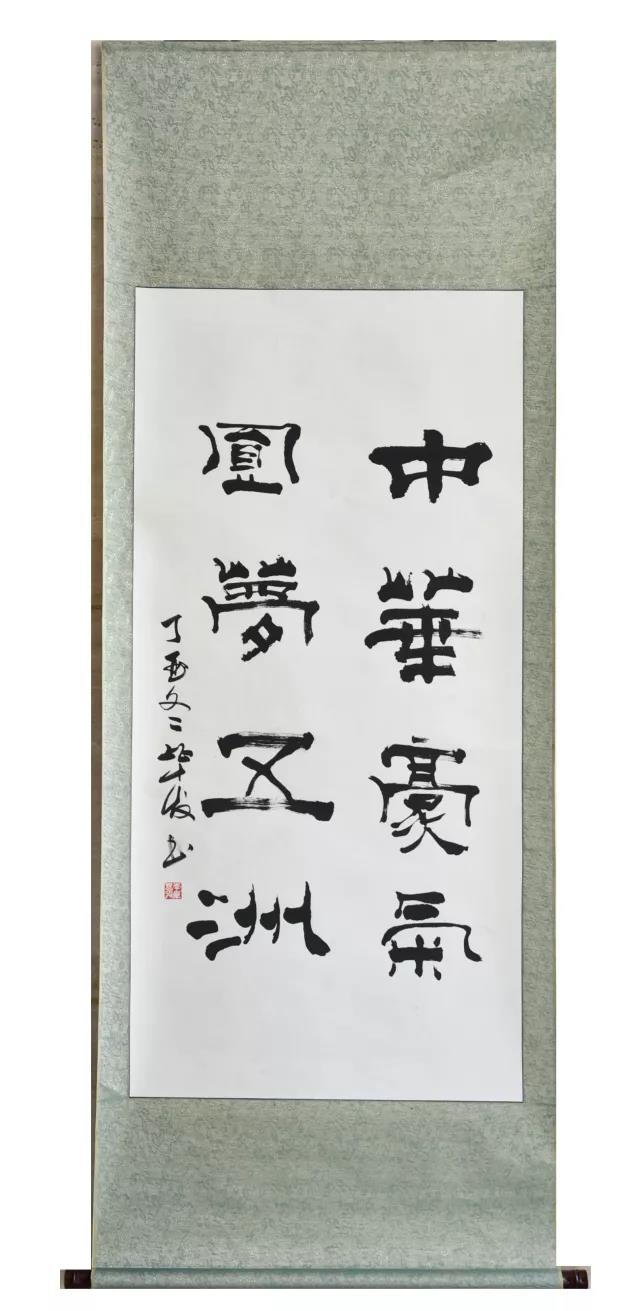 中華豪氣
圓夢五洲
丁酉冬 華俊書